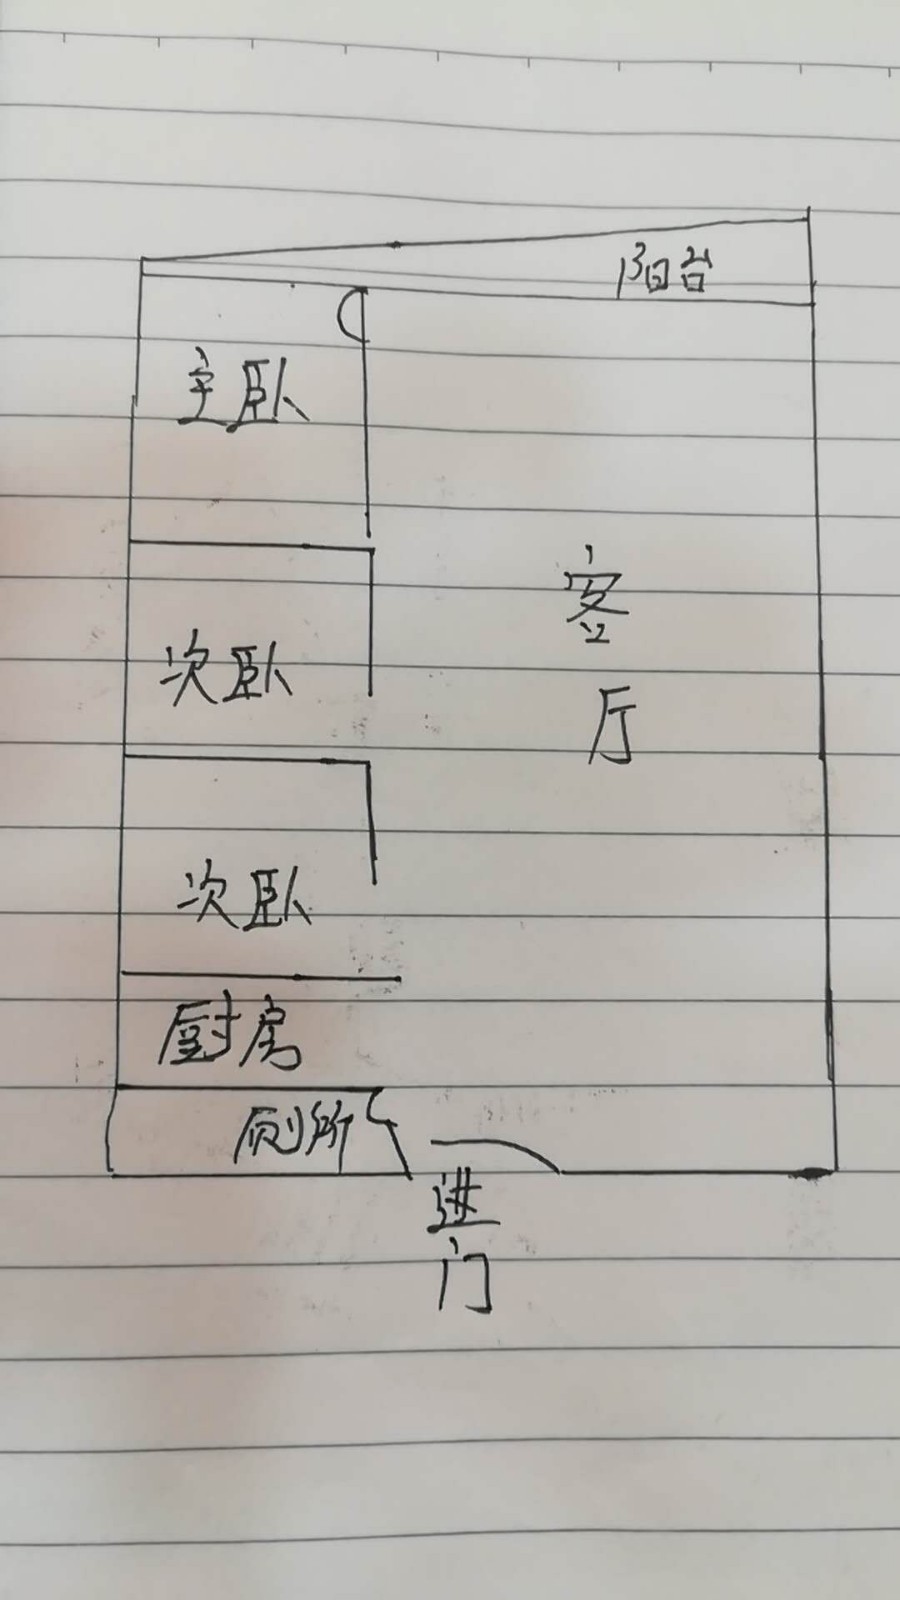 阳台
主卧
客厅
次卧
次卧
厨房
厕所
进门